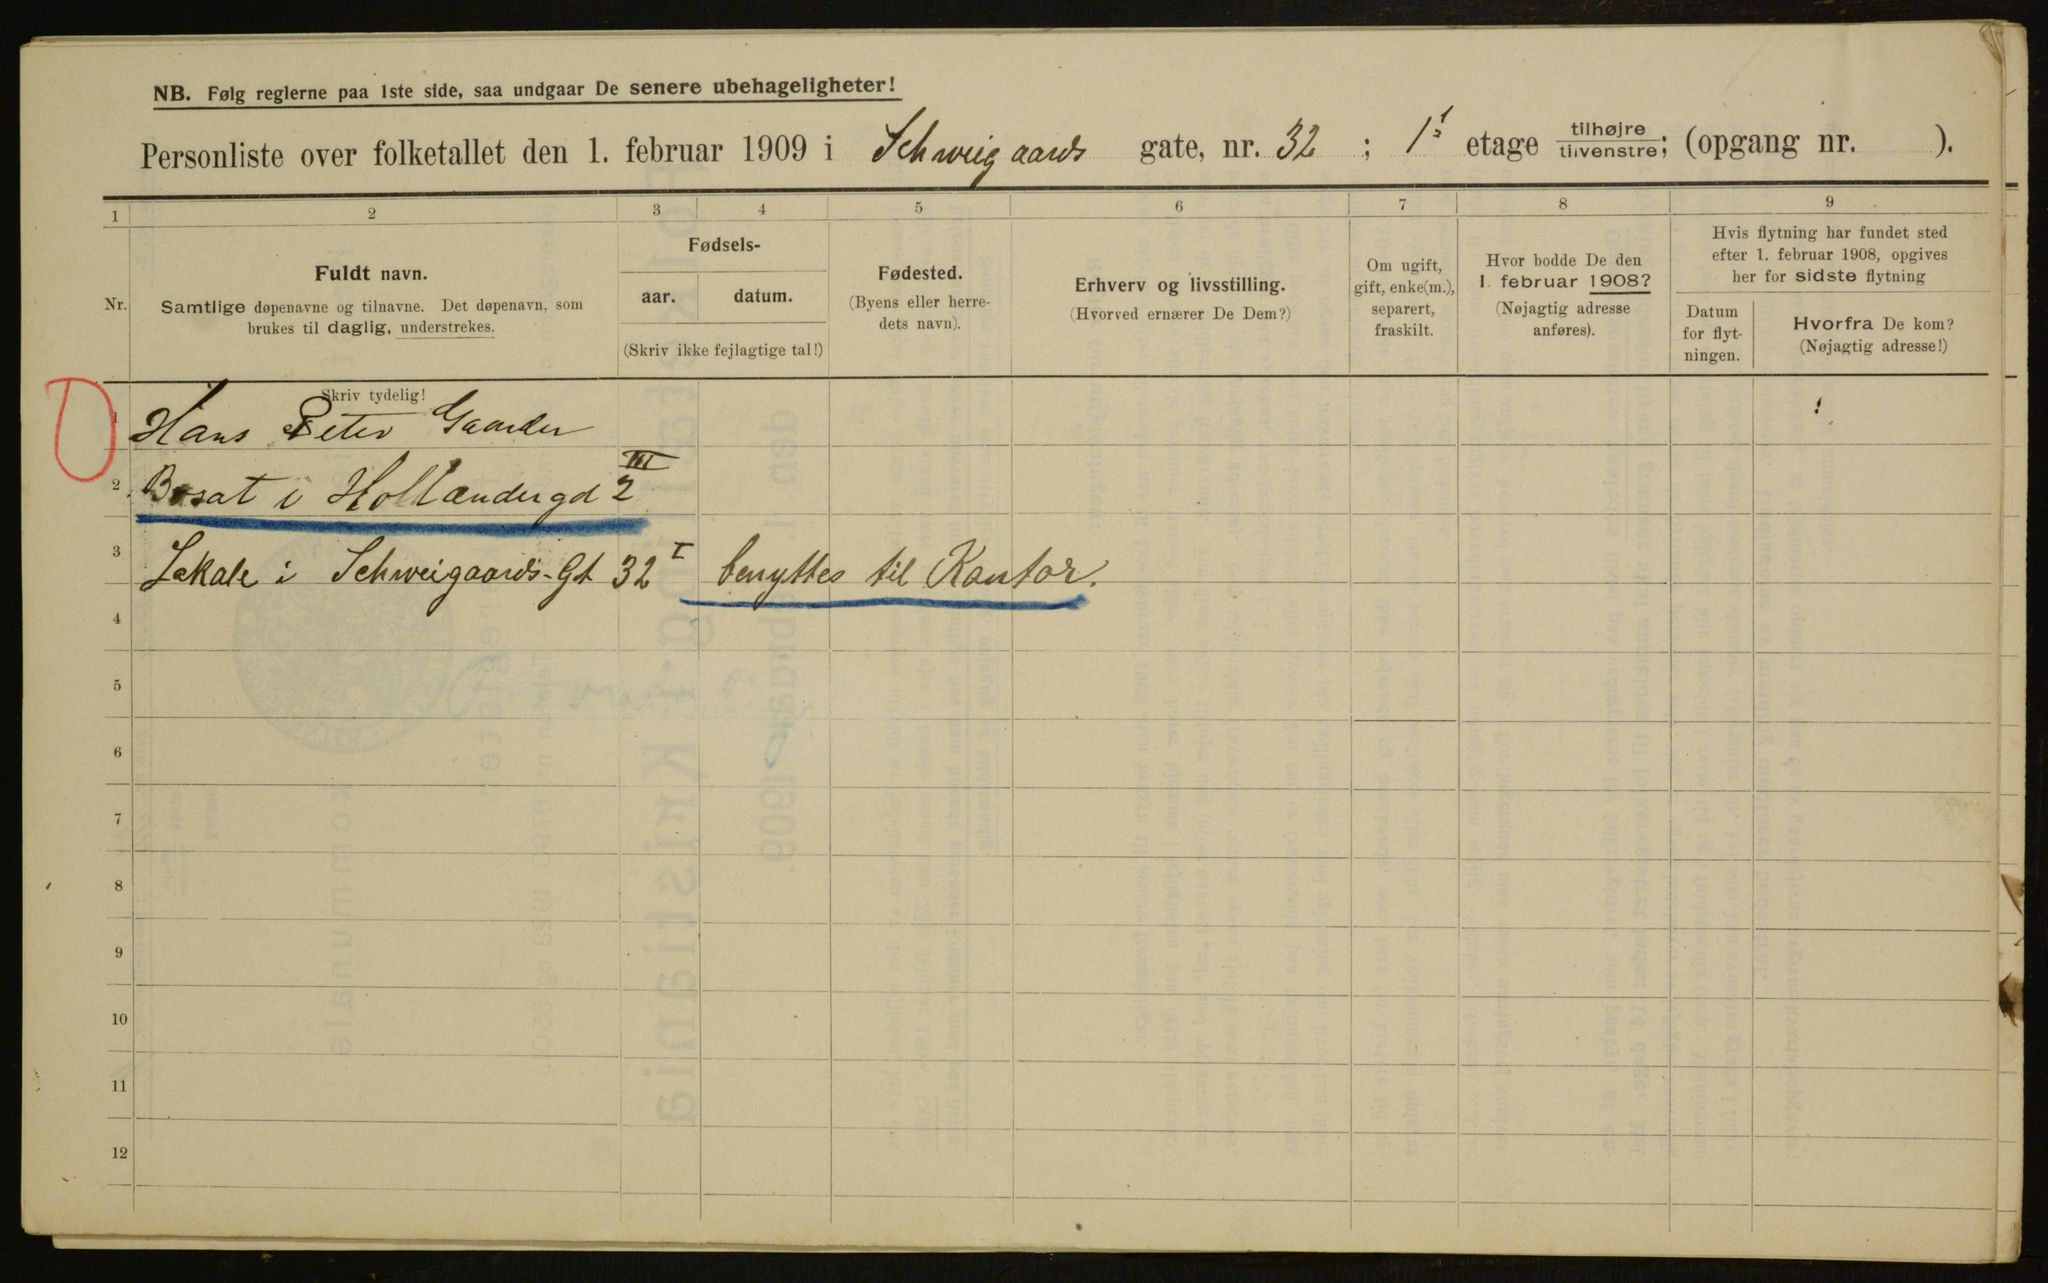 NB. Følg reglerne paa 1ste side, saa undgaar De senere ubehageligheter!
Personliste over folketallet den 1. februar 1909 i Schweigaards gate, nr. 32 ; 1s etage tilhøjre tilvenstre; (opgang nr. ).
1 2 3 4 5 6 7 8 9
Nr.
Fuldt navn.
Samtlige døpenavne og tilnavne. Det døpenavn, som
brukes til daglig, understrekes.
Fødsels-
aar. datum.
(Skriv ikke fejlagtige tal!)
Fødested.
(Byens eller herre-
dets navn).
Erhverv og livsstilling.
(Hvorved ernærer De Dem?)
Om ugift,
gift, enke(m.),
separert,
fraskilt.
Hvor bodde De den
1. februar 1908?
(Nøjagtig adresse
anføres).
Hvis flytning har fundet sted
efter 1. februar 1908, opgives
her for sidste flytning
Datum
for flyt-
ningen.
Hvorfra De kom?
(Nøjagtig adresse!)
Skriv tydelig!
1 Hans Peter Gaarder
2 Bosat i Hollændergd 2 III
3 Lokale i Schweigaards-Gt 32 I benyttes til Kontor.
4
5
6
7
8
9
10
11
12